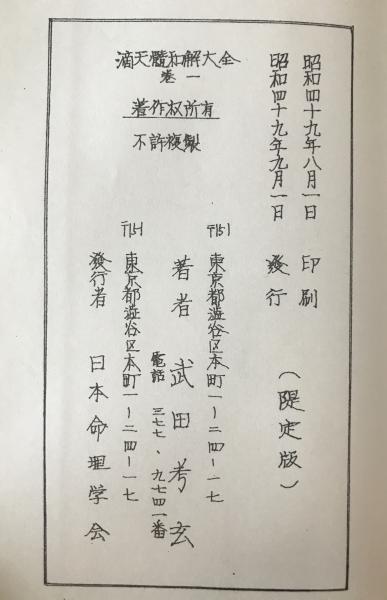 昭和四十九年八月一日 印刷
昭和四十九年九月一日 発行
(限定版)
滴天髓和解大全
巻一
著作权所有
不許複製
〒151 東京都澁谷区本町一ー二四ー一七
著者 武田考玄
電話 三七七、九七四一番
〒151 東京都澁谷区本町一ー二四ー一七
發行者 日本命理学会